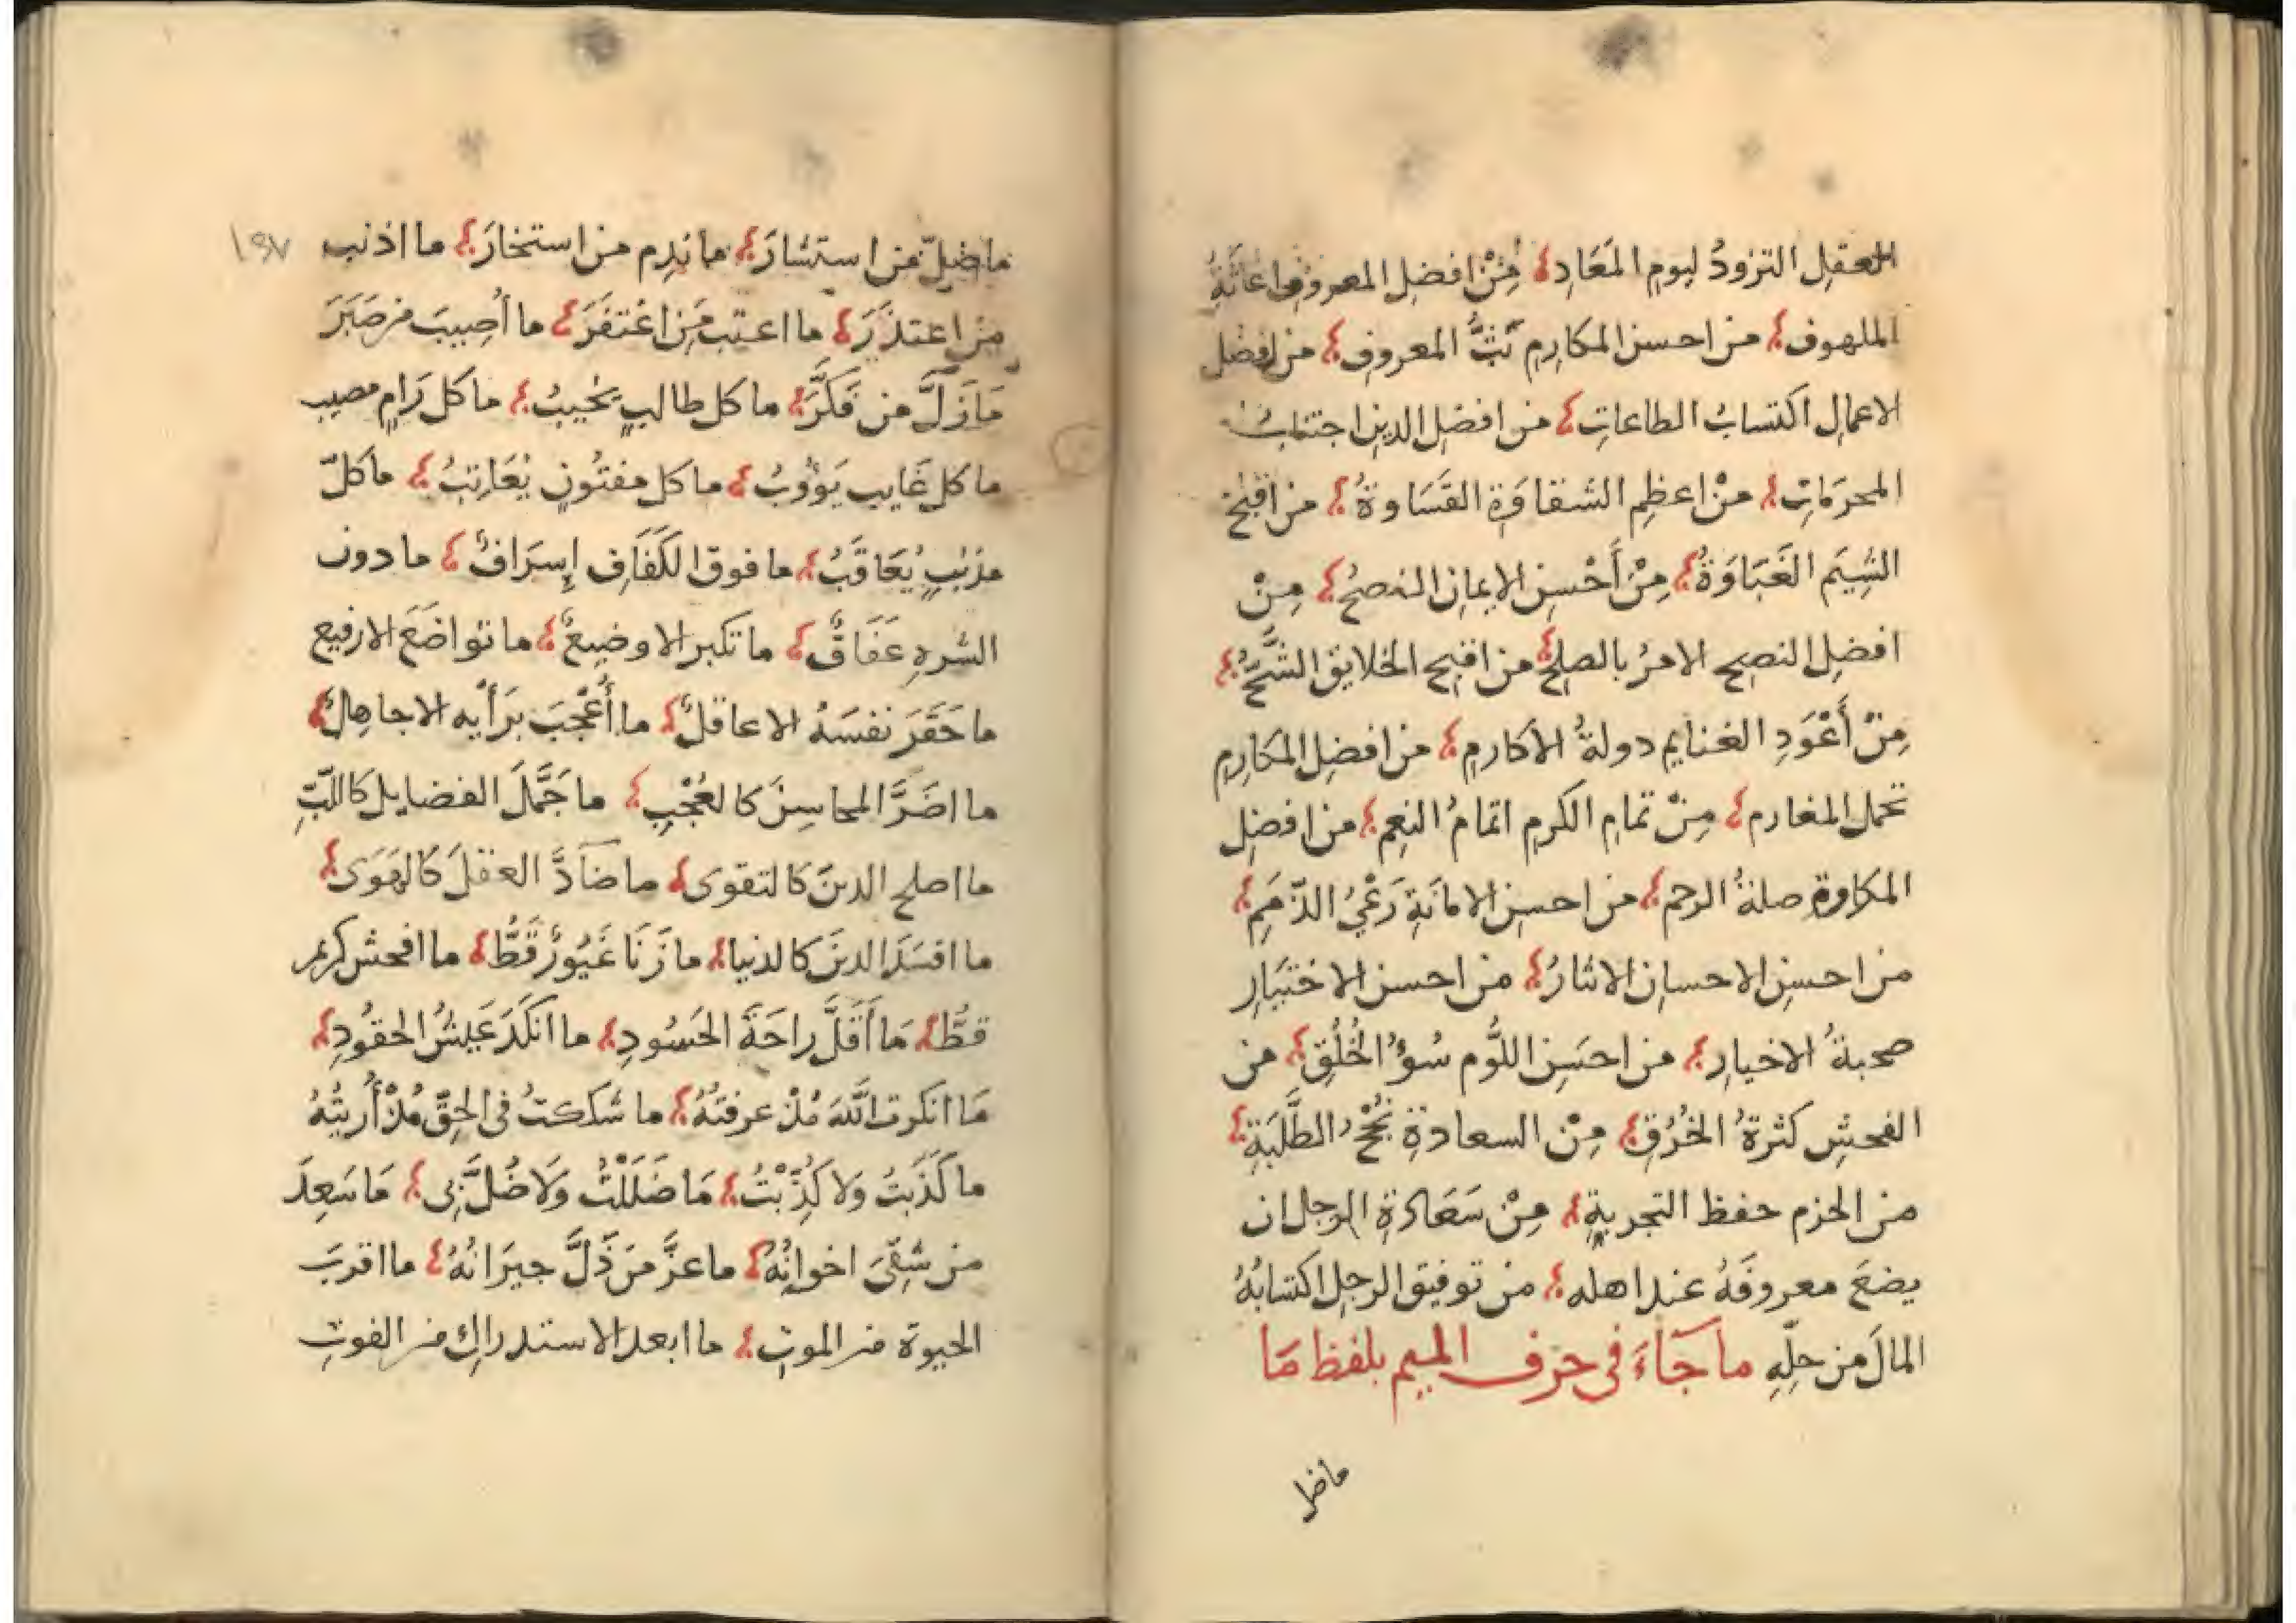 العقل التزودُ ليوم المَعَادِ؛ مِنْ افضل المعروف اغاثَةُ
الملهوف؛ من احسن المكارم بَثُّ المعروف؛ من افضل
الاعمال اكتسابُ الطاعاتِ؛ من افضل الدين اجتنابُ
المحرمَاتِ؛ منْ اعظم الشقاوَةِ القَسَاوةُ؛ من اقبح
الشِيَم الغَبَاوَةُ؛ مِنْ أَحْسن الايمان النصحُ؛ مِنْ
افضل النصح الامرُ بالصلح؛ من اقبح الخلايق الشُّحُّ؛
مِنْ أَعْوَدِ الغنايم دولةُ الاكارم؛ من افضل المكارم
تحمل المغارم؛ مِنْ تمام الكرم اتمامُ النعم؛ من افضل
المكاوة صلةُ الرحم؛ من احسن الامانَةِ رَعْيُ الذّمَمِ؛
من احسن الاحسان الايثارُ؛ من احسن الاختيَار
صحبةُ الاخيار؛ من احسَن اللُّوم سُوْءُ الخُلُقِ؛ من
الفحش كثرةُ الخُرُقِ؛ مِنْ السعادةِ نُجْحُ الطَّلَبَةِ؛
من الحزم حفظ التجربةِ؛ مِنْ سَعَادَةِ الرجل ان
يضعَ معروفَهُ عند اهله؛ من توفيق الرجل اكتسابُهُ
المالَ من حِلّهِ ما جَاءَ في حرف الميم بلفظ مَا
ماضل
ماضلّ من استشارَ؛ ما نَدِم من استخارَ؛ ما اذنب ١٩٧
من اعتذَرَ؛ ما اعتب مَن اغْتفَرَ؛ ما أُصِيبَ من صَبَرَ
مَا زَلَّ من فَكَّرَ؛ ما كل طالبٍ يَخيبُ؛ ما كل رَامٍ مصيب
ما كل غَايبٍ يَؤُوبُ؛ ما كل مفتُونٍ يُعَاتبُ؛ ما كلّ
مذنبٍ يُعَاقَبُ؛ ما فوق الكَفَافِ إِسرَافٌ؛ ما دون
الشرهِ عَفَافٌ؛ ما تكبر الا وضيعٌ؛ ما تواضَعَ الا رفيع
ما حَقَّرَ نفسَهُ الا عاقلٌ؛ ما أُعْجِبَ برَأيه الا جاهلٌ؛
ما اضَرَّ المحاسِنَ كالعُجْبِ؛ ما جَمَّلَ الفضايل كاللّبِّ
ما اصلح الدينَ كالتقوى؛ ما ضَادَّ العقلَ كالهَوَى؛
ما افسَدَ الدينَ كالدنيا؛ ما زَنَا غَيُورٌ قَطُّ؛ ما افحش كريم
قطُّ؛ مَا أَقَلَّ راحَةَ الحَسُودِ؛ ما انكَدَ عَيشُ الحقُودِ؛
مَا انكرتُ اللّهَ مُذْ عرفتُهُ؛ ما شككتُ في الحقّ مُذْ أُريتُهُ
ما كَذَبتُ وَلا كُذِّبْتُ؛ مَا ضَلَلْتُ وَلَا ضُلَّ بِى؛ مَا سَعِدَ
من شَقِىَ اخوانُهُ؛ ما عزَّ مَن ذَلَّ جيرَانُهُ؛ ما اقربَ
الحيوة من الموتِ؛ ما ابعد الاستدراكَ من الفوتِ